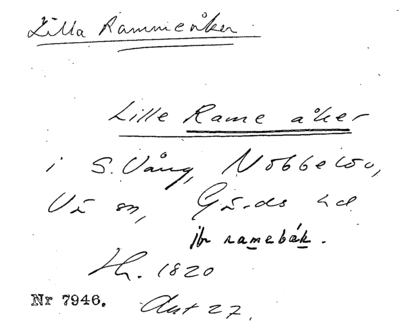 Lilla Rammeåker.
Lille Rame åker
i S. Vång, Nöbbelöv,
Vä sn, Gärds hd
jfr ramebåk.
Hr. 1820
Nr 7946. Akt 27.